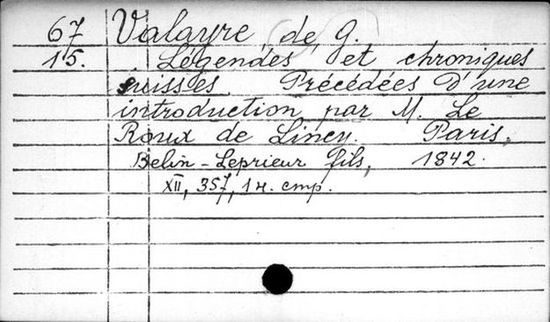 67 Valayre, de, G.
15. Légendes et chroniques
suisses Précédées d'une
introduction par M. Le
Roux de Lincy. Paris,
Belin-Leprieur fils, 1842.
XII, 357, 1 н. стр.